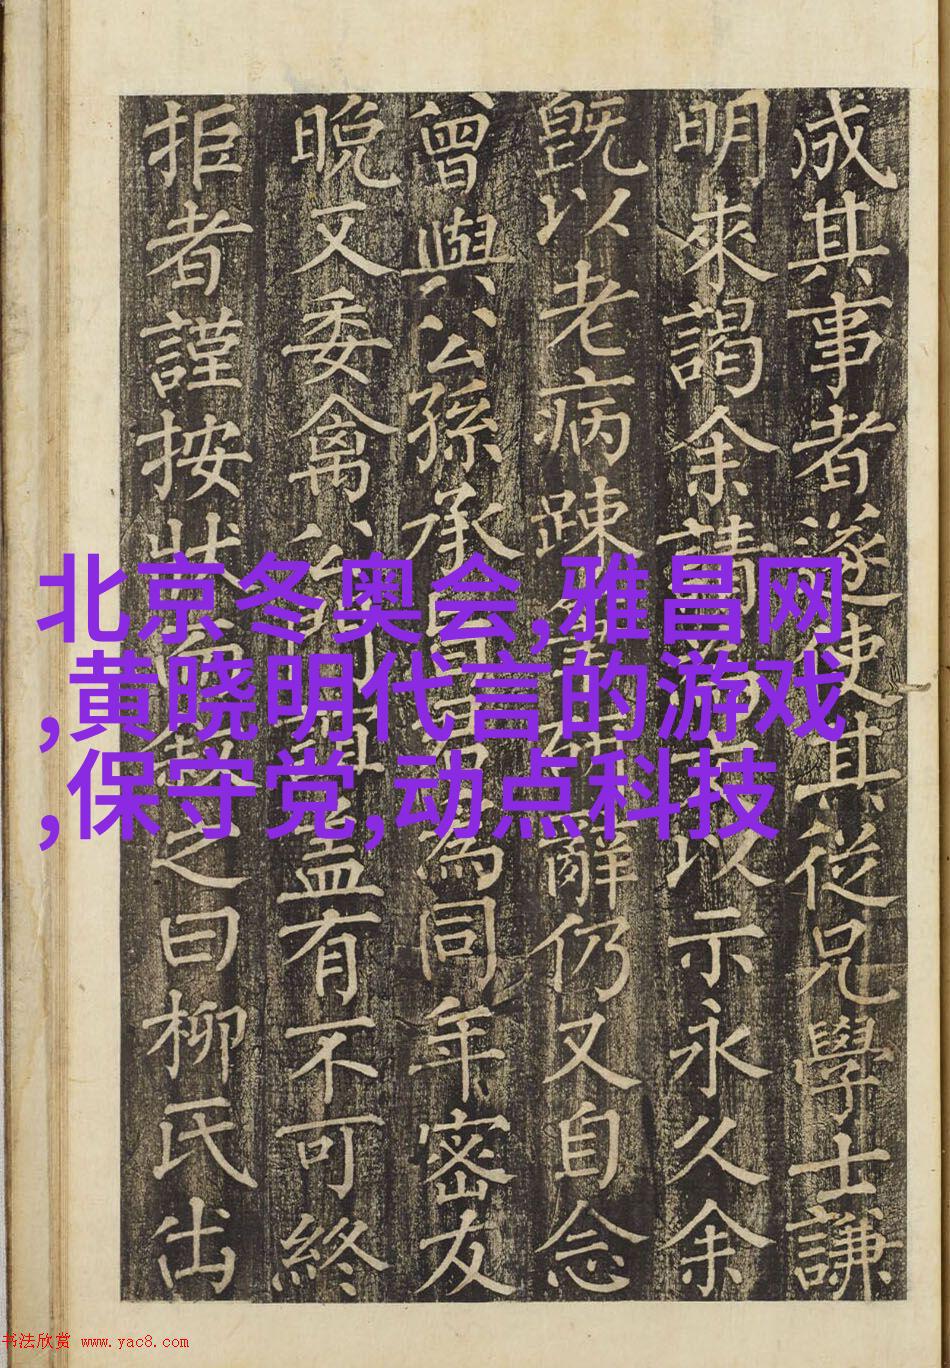 成其事者遂使其從兄學士謙
明來謁余請以示永久余
既以老病踈辭仍又自念
曾與公孫承為同年密友
晚又委禽公盖有不可終
拒者謹按狀之曰柳氏出
北京冬奥会,雅昌网
,黄晓明代言的游戏
,保守党,动点科技
书法欣赏 www.yac8.com